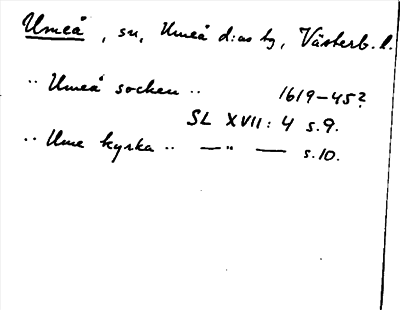 Umeå, sn, Umeå d:as tg, Västerb. l.
¨ Umeå socken ¨ 1619-45?
SL XVII: 4 s. 9.
¨ Ume kyrka ¨ —"— s. 10.